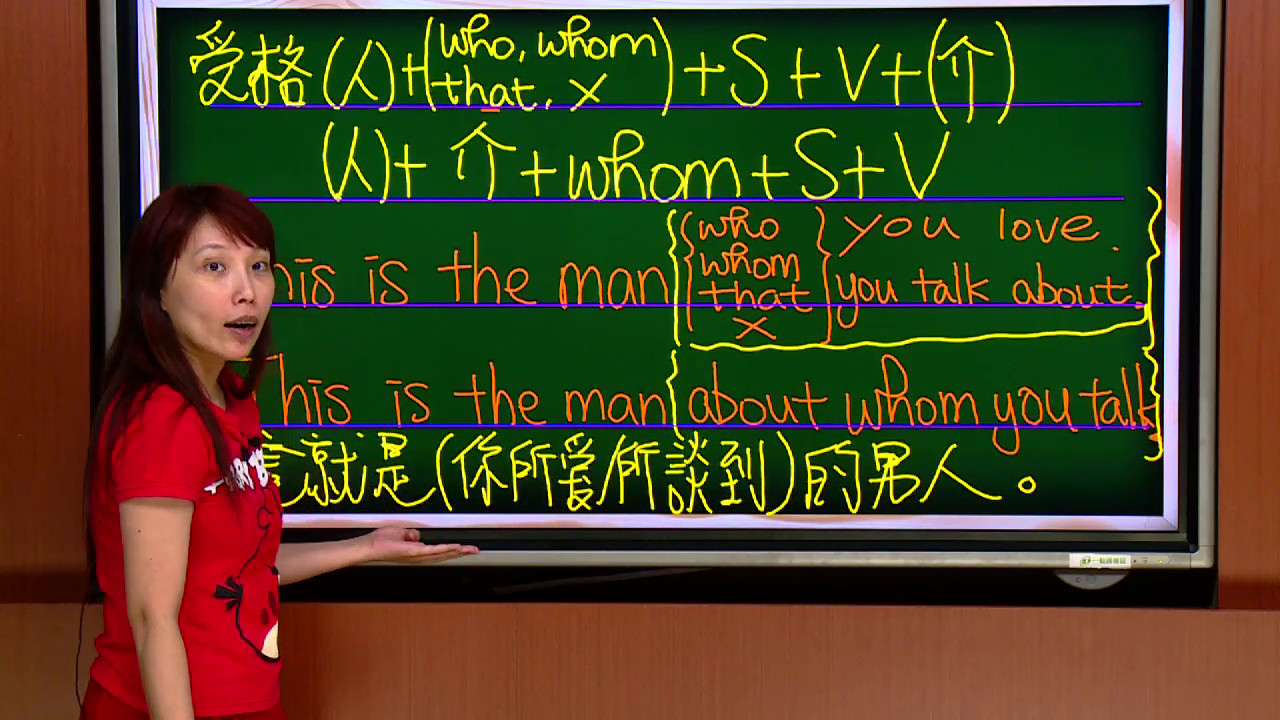 受格(人)+(who, whom that, x)+S+V+(介)
(人)+介+whom+S+V
his is the man {who whom that x} you love. you talk about.
This is the man {about whom you talk}.
就是(你所爱/所談到)的男人。